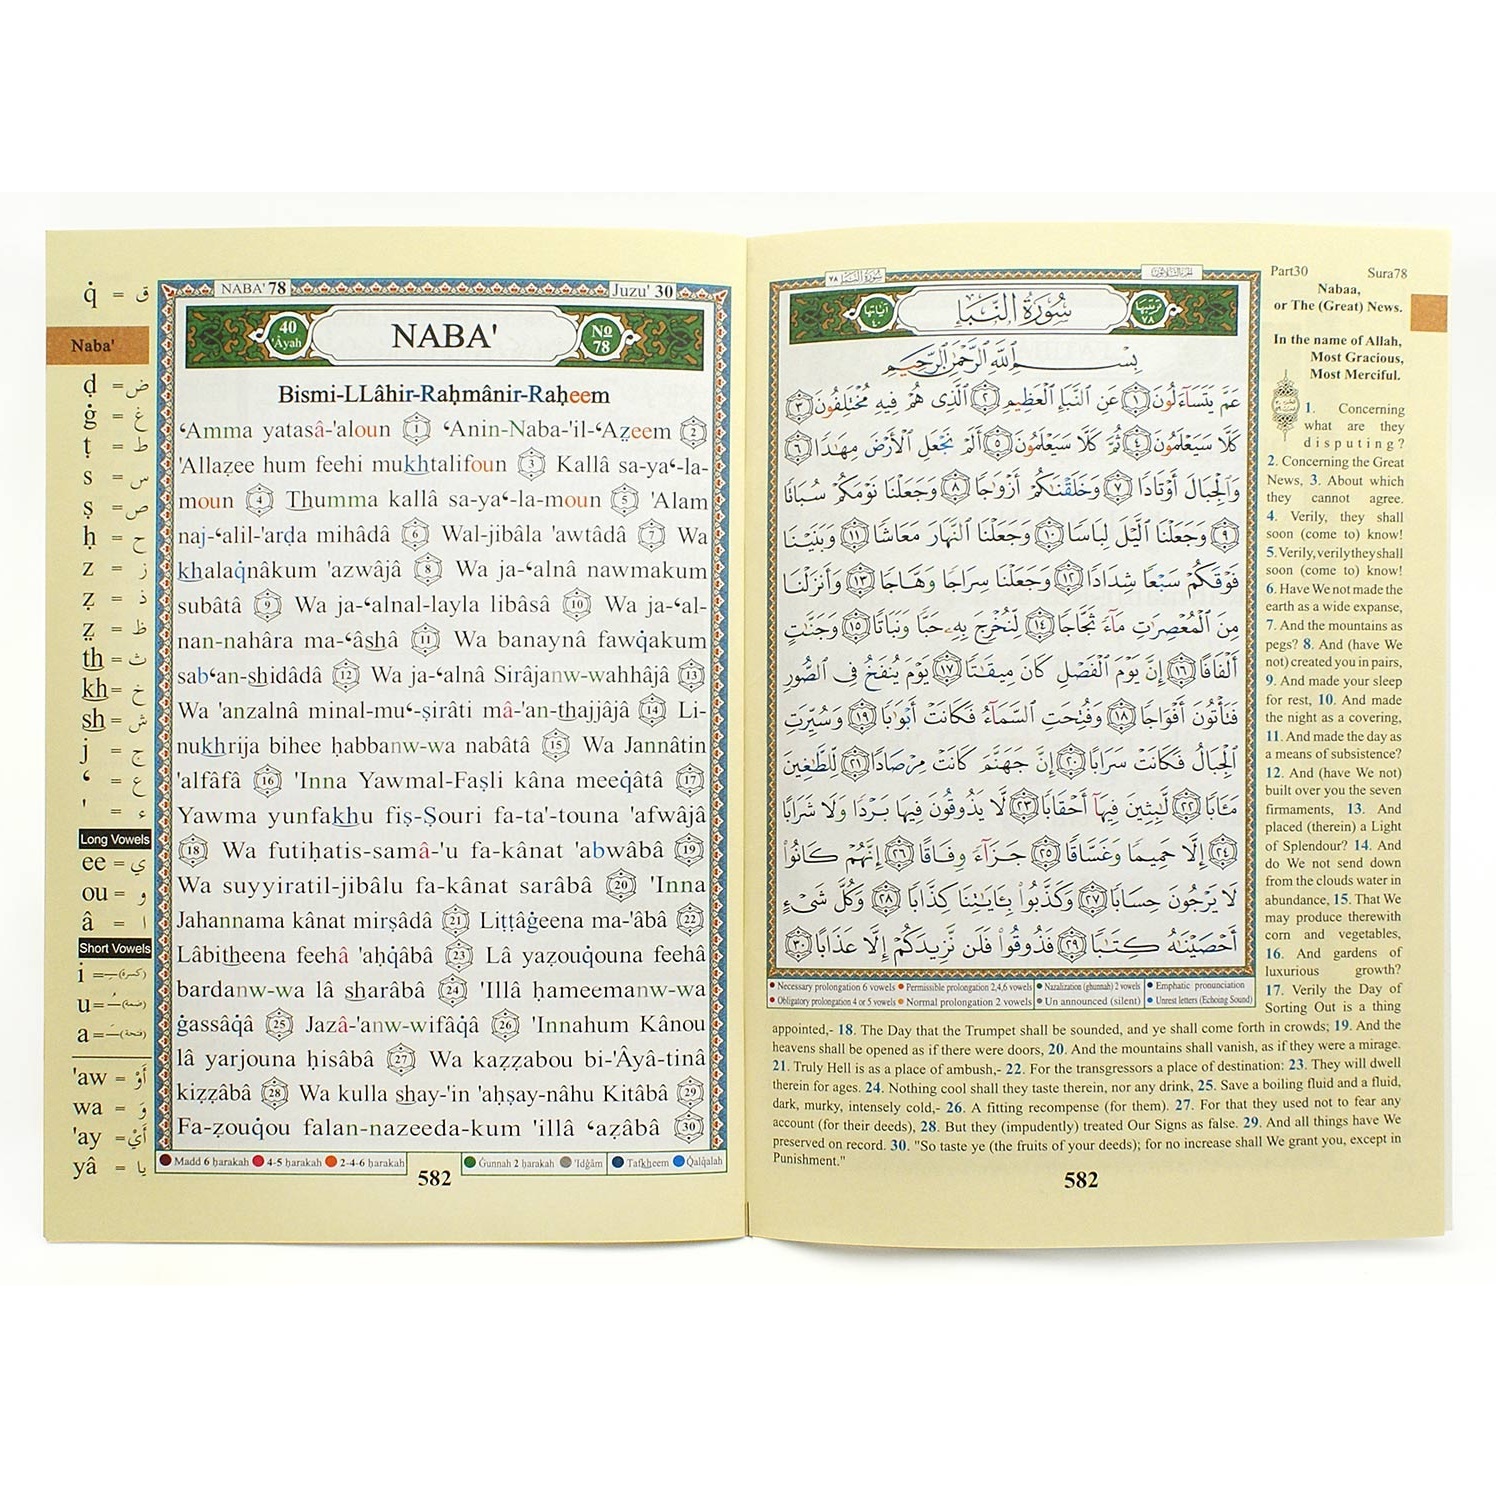 q̇ = ق
Naba'
ḍ = ض
ġ = غ
ṭ = ط
s = س
ṣ = ص
ḥ = ح
z = ز
ẓ = ذ
z̤ = ظ
th = ث
kh = خ
sh = ش
j = ج
‘ = ع
' = ء
Long Vowels
ee = ي
ou = و
â = ا
Short Vowels
i = (كسرة)
u = (ضمة)
a = (فتحة)
'aw = أَوْ
wa = وَ
'ay = أَيْ
yâ = يا
NABA' 78
Juzu' 30
40 'Âyah
NABA'
No 78
Bismi-LLâhir-Raḥmânir-Raḥeem
‘Amma yatasâ-'aloun 1 ‘Anin-Naba-'il-‘Aẓeem 2
'Allaẓee hum feehi mukhtalifoun 3 Kallâ sa-ya‘-la-
moun 4 Thumma kallâ sa-ya‘-la-moun 5 'Alam
naj-‘alil-'arḍa mihâdâ 6 Wal-jibâla 'awtâdâ 7 Wa
khalaq̇nâkum 'azwâjâ 8 Wa ja-‘alnâ nawmakum
subâtâ 9 Wa ja-‘alnal-layla libâsâ 10 Wa ja-‘al-
nan-nahâra ma-‘âshâ 11 Wa banaynâ fawq̇akum
sab‘an-shidâdâ 12 Wa ja-‘alnâ Sirâjanw-wahhâjâ 13
Wa 'anzalnâ minal-mu‘-ṣirâti mâ-'an-thajjâjâ 14 Li-
nukhrija bihee ḥabbanw-wa nabâtâ 15 Wa Jannâtin
'alfâfâ 16 'Inna Yawmal-Faṣli kâna meeq̇âtâ 17
Yawma yunfakhu fiṣ-Ṣouri fa-ta'-touna 'afwâjâ
18 Wa futiḥatis-samâ-'u fa-kânat 'abwâbâ 19
Wa suyyiratil-jibâlu fa-kânat sarâbâ 20 'Inna
Jahannama kânat mirṣâdâ 21 Liṭṭâġeena ma-'âbâ 22
Lâbitheena feehâ 'aḥq̇âbâ 23 Lâ yaẓouq̇ouna feehâ
bardanw-wa lâ sharâbâ 24 'Illâ ḥameemanw-wa
ġassâq̇â 25 Jazâ-'anw-wifâq̇â 26 'Innahum Kânou
lâ yarjouna ḥisâbâ 27 Wa kaẓẓabou bi-'Âyâ-tinâ
kiẓẓâbâ 28 Wa kulla shay-'in 'aḥṣay-nâhu Kitâbâ 29
Fa-ẓouq̇ou falan-nazeeda-kum 'illâ ‘aẓâbâ 30
Madd 6 ḥarakah 4-5 ḥarakah 2-4-6 ḥarakah Ġunnah 2 ḥarakah 'Idġâm Tafkheem Q̇alq̇alah
582
سُورَةُ النَّبَإِ ٧٨
الجزء الثلاثون
آياتها ٤٠
سُورَةُ النَّبَإِ
ترتيبها ٧٨
بِسْمِ اللَّهِ الرَّحْمَٰنِ الرَّحِيمِ
عَمَّ يَتَسَآءَلُونَ ١ عَنِ النَّبَإِ الْعَظِيمِ ٢ الَّذِى هُمْ فِيهِ مُخْتَلِفُونَ ٣
كَلَّا سَيَعْلَمُونَ ٤ ثُمَّ كَلَّا سَيَعْلَمُونَ ٥ أَلَمْ نَجْعَلِ الْأَرْضَ مِهَٰدًا ٦
وَالْجِبَالَ أَوْتَادًا ٧ وَخَلَقْنَٰكُمْ أَزْوَٰجًا ٨ وَجَعَلْنَا نَوْمَكُمْ سُبَاتًا
٩ وَجَعَلْنَا الَّيْلَ لِبَاسًا ١٠ وَجَعَلْنَا النَّهَارَ مَعَاشًا ١١ وَبَنَيْنَا
فَوْقَكُمْ سَبْعًا شِدَادًا ١٢ وَجَعَلْنَا سِرَاجًا وَهَّاجًا ١٣ وَأَنزَلْنَا
مِنَ الْمُعْصِرَٰتِ مَآءً ثَجَّاجًا ١٤ لِّنُخْرِجَ بِهِۦ حَبًّا وَنَبَاتًا ١٥ وَجَنَّٰتٍ
أَلْفَافًا ١٦ إِنَّ يَوْمَ الْفَصْلِ كَانَ مِيقَٰتًا ١٧ يَوْمَ يُنفَخُ فِى الصُّورِ
فَتَأْتُونَ أَفْوَاجًا ١٨ وَفُتِحَتِ السَّمَآءُ فَكَانَتْ أَبْوَٰبًا ١٩ وَسُيِّرَتِ
الْجِبَالُ فَكَانَتْ سَرَابًا ٢٠ إِنَّ جَهَنَّمَ كَانَتْ مِرْصَادًا ٢١ لِّلطَّٰغِينَ
مَـَٔابًا ٢٢ لَّٰبِثِينَ فِيهَآ أَحْقَابًا ٢٣ لَّا يَذُوقُونَ فِيهَا بَرْدًا وَلَا شَرَابًا
٢٤ إِلَّا حَمِيمًا وَغَسَّاقًا ٢٥ جَزَآءً وِفَاقًا ٢٦ إِنَّهُمْ كَانُوا
لَا يَرْجُونَ حِسَابًا ٢٧ وَكَذَّبُوا بِـَٔايَٰتِنَا كِذَّابًا ٢٨ وَكُلَّ شَىْءٍ
أَحْصَيْنَٰهُ كِتَٰبًا ٢٩ فَذُوقُوا فَلَن نَّزِيدَكُمْ إِلَّا عَذَابًا ٣٠
Necessary prolongation 6 vowels Permissible prolongation 2,4,6 vowels Nazalization (ghunnah) 2 vowels Emphatic pronunciation
Obligatory prolongation 4 or 5 vowels Normal prolongation 2 vowels Un announced (silent) Unrest letters (Echoing Sound)
Part30 Sura78
Nabaa,
or The (Great) News.
In the name of Allah,
Most Gracious,
Most Merciful.
1. Concerning
what are they
disputing?
2. Concerning the Great
News, 3. About which
they cannot agree.
4. Verily, they shall
soon (come to) know!
5. Verily, verily they shall
soon (come to) know!
6. Have We not made the
earth as a wide expanse,
7. And the mountains as
pegs? 8. And (have We
not) created you in pairs,
9. And made your sleep
for rest, 10. And made
the night as a covering,
11. And made the day as
a means of subsistence?
12. And (have We not)
built over you the seven
firmaments, 13. And
placed (therein) a Light
of Splendour? 14. And
do We not send down
from the clouds water in
abundance, 15. That We
may produce therewith
corn and vegetables,
16. And gardens of
luxurious growth?
17. Verily the Day of
Sorting Out is a thing
appointed,- 18. The Day that the Trumpet shall be sounded, and ye shall come forth in crowds; 19. And the
heavens shall be opened as if there were doors, 20. And the mountains shall vanish, as if they were a mirage.
21. Truly Hell is as a place of ambush,- 22. For the transgressors a place of destination: 23. They will dwell
therein for ages. 24. Nothing cool shall they taste therein, nor any drink, 25. Save a boiling fluid and a fluid,
dark, murky, intensely cold,- 26. A fitting recompense (for them). 27. For that they used not to fear any
account (for their deeds), 28. But they (impudently) treated Our Signs as false. 29. And all things have We
preserved on record. 30. "So taste ye (the fruits of your deeds); for no increase shall We grant you, except in
Punishment."
582